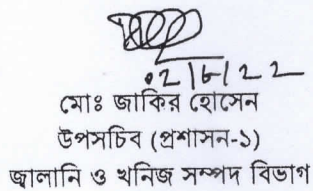 ০২|৬|২২
মোঃ জাকির হোসেন
উপসচিব (প্রশাসন-১)
জ্বালানি ও খনিজ সম্পদ বিভাগ